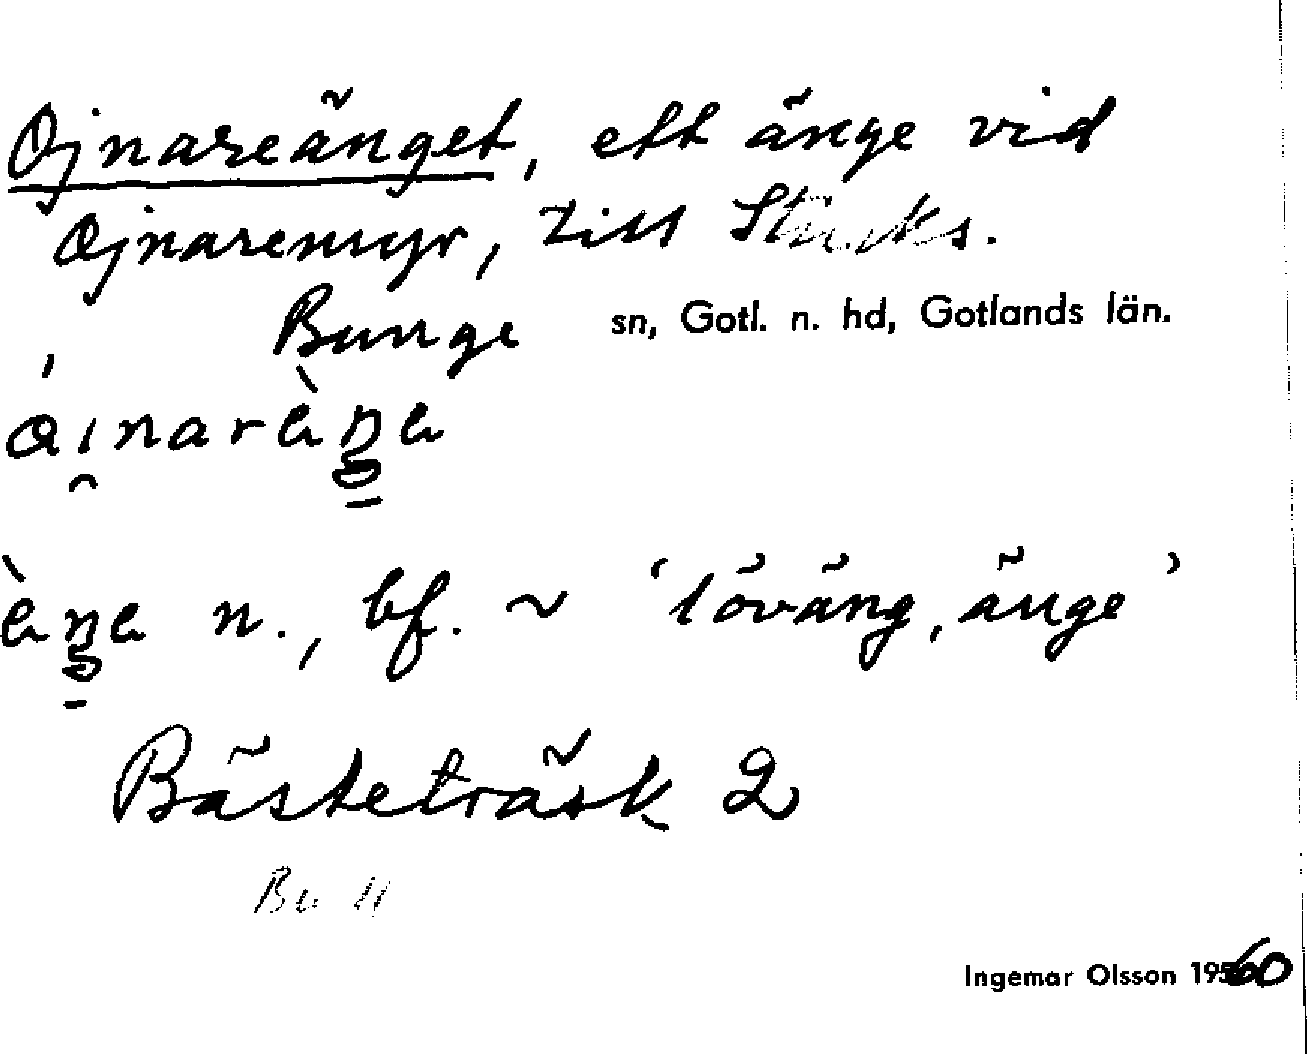 Ojnareänget, ett änge vid
Ojnaremyr, till Stucks.
Bunge sn, Gotl. n. hd, Gotlands län.
n., bf. ~ ‘löväng, änge’
Bästeträsk 2
Bu 11
Ingemar Olsson 1960